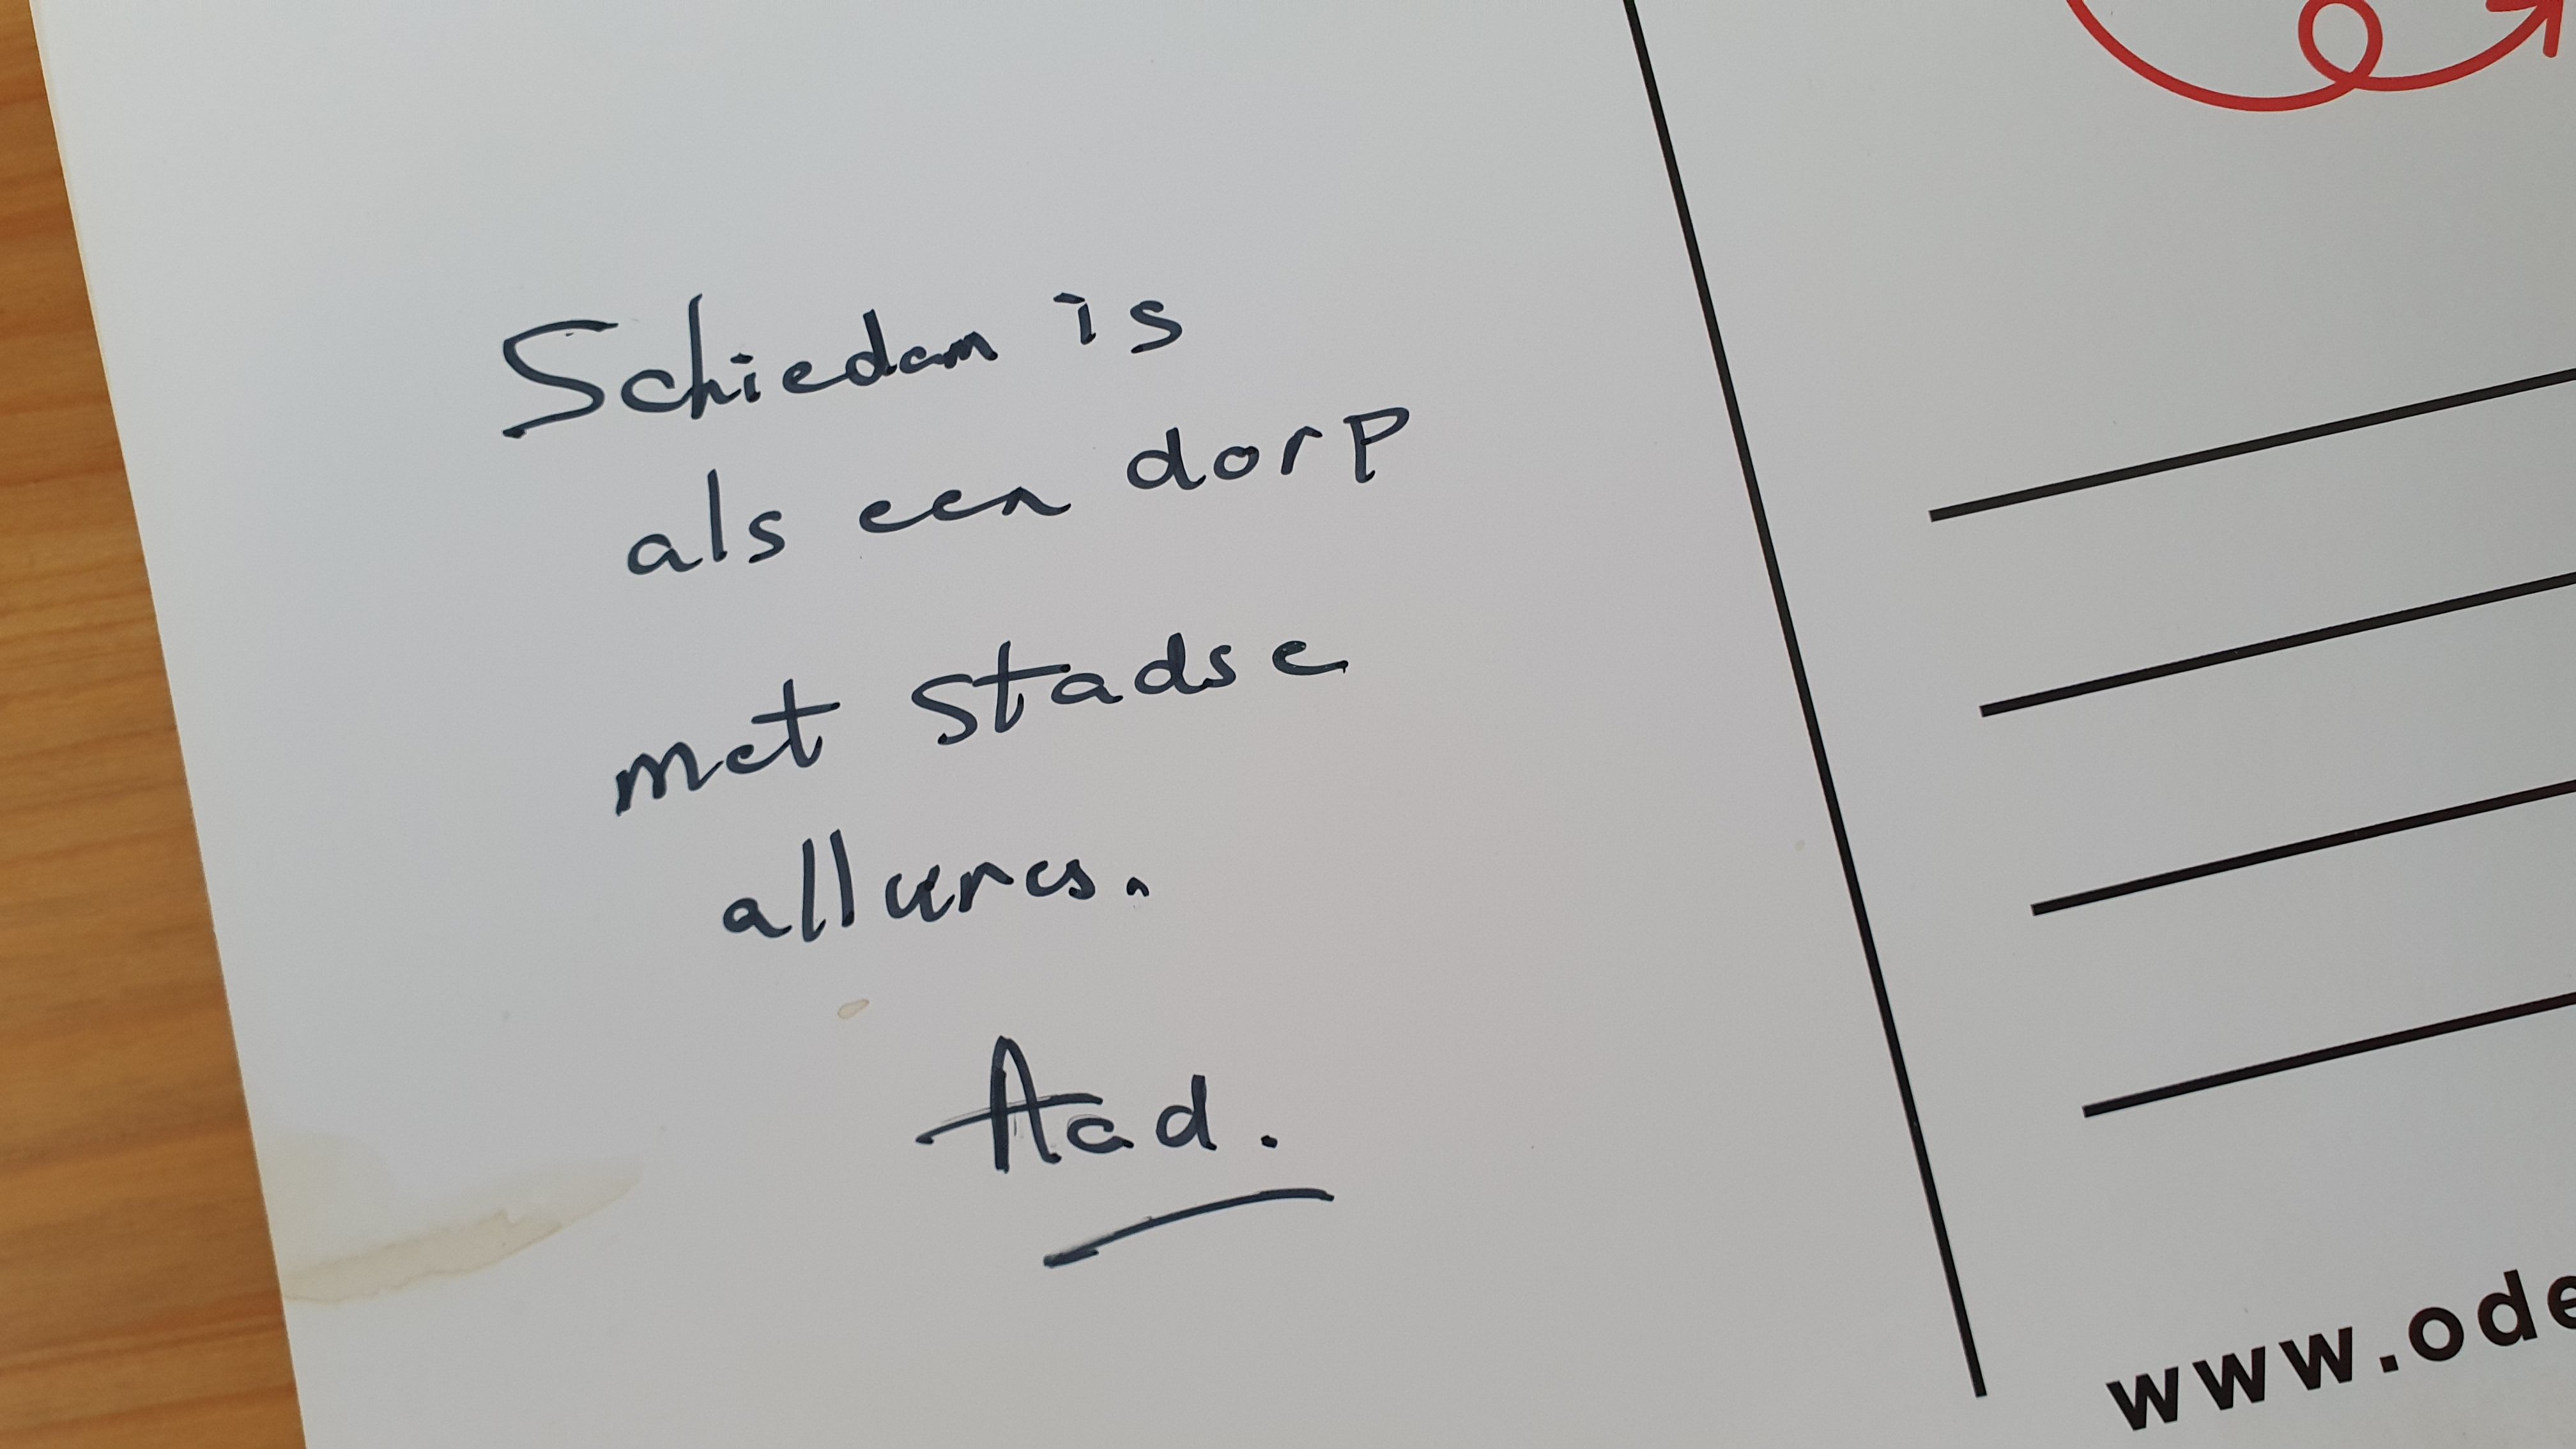 Schiedam is
als een dorp
met stadse
allures.
Aad.
www.ode